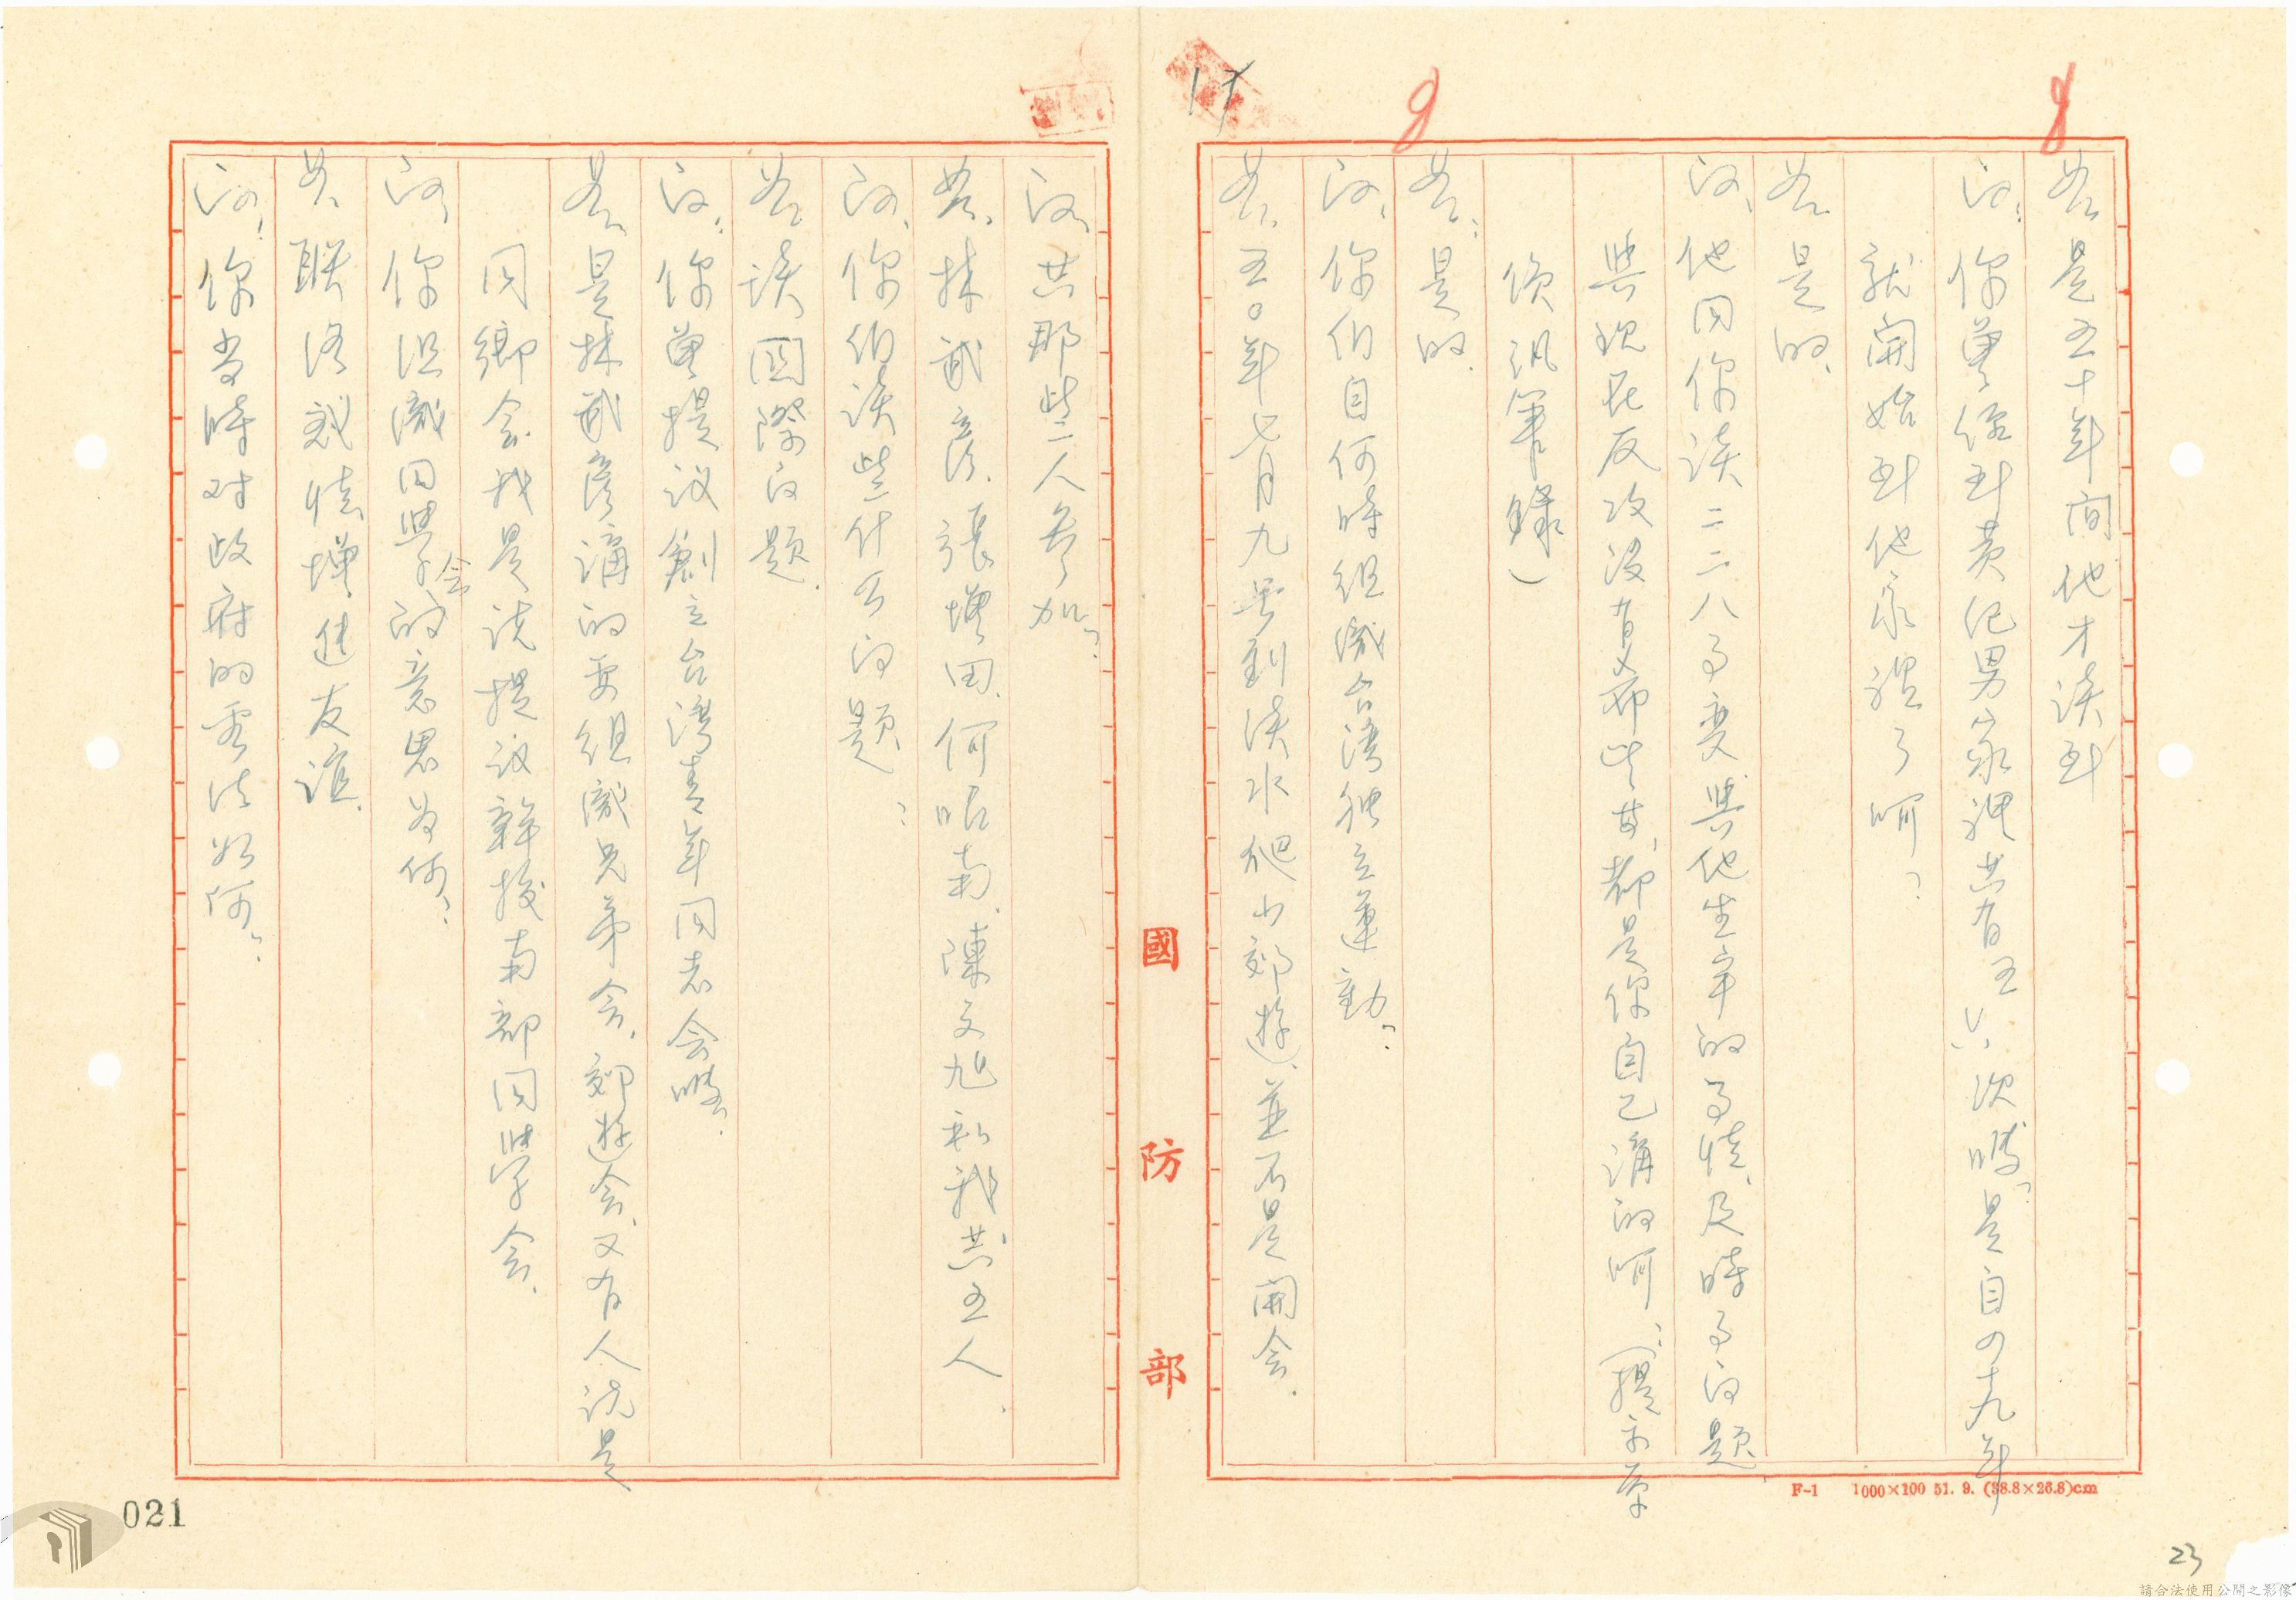 答、是五十年間他才談到
问：你曾經到黄紀男家裡共有五六次嗎？是自四十九年
就開始到他家裡了啊？
答、是的、
问、他同你談二二八事变與他坐牢的事情、及時事问題
與現在反攻沒有希望等、都是你自己講的啊？（提示原
偵訊筆錄）
答：是的、
问、你们自何時组織台湾独立運動？
答、五〇年七月九号到淡水爬山郊遊、並不是開会、
问、共那些人参加？
答、林武彦、張增田、何昭南、陳文旭和我共五人、
问、你们談些什么问題？
答、談國際问題、
问：你曾提议創立台灣青年同志会嗎？
答、是林武彦講的要组織兄弟会、郊遊会、又有人说是
同鄉会、我是说提议幹校南部同學会、
问、你组織同學会的意思为何？
答、联络感情增進友誼、
问：你当時对政府的看法如何？
國防部
F-1 1000×100 51. 9. (38.8×26.8)cm
17
021
23
請合法使用公開之影像